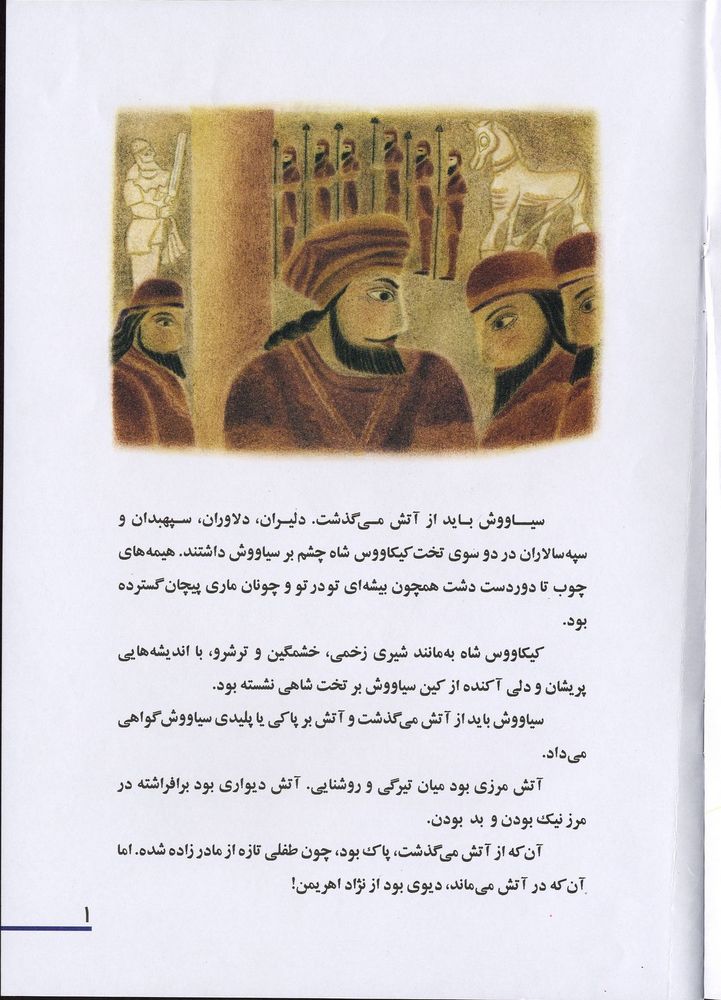 سیـــاووش بـایـد از آتش مـی‌گذشت. دلیران، دلاوران، سـپهبدان و
سپه‌سالاران در دو سوی تخت کیکاووس شاه چشم بر سیاووش داشتند. هیمه‌های
چوب تا دوردست دشت همچون بیشه‌ای تودرتو و چونان ماری پیچان گسترده
بود.
کیکاووس شاه به‌مانند شیری زخمی، خشمگین و ترشرو، با اندیشه‌هایی
پریشان و دلی آکنده از کین سیاووش بر تخت شاهی نشسته بود.
سیاووش باید از آتش می‌گذشت و آتش بر پاکی یا پلیدی سیاووش گواهی
می‌داد.
آتش مرزی بود میان تیرگی و روشنایی. آتش دیواری بود برافراشته در
مرز نیک بودن و بد بودن.
آن‌که از آتش می‌گذشت، پاک بود، چون طفلی تازه از مادر زاده شده. اما
آن‌که در آتش می‌ماند، دیوی بود از نژاد اهریمن!
۱